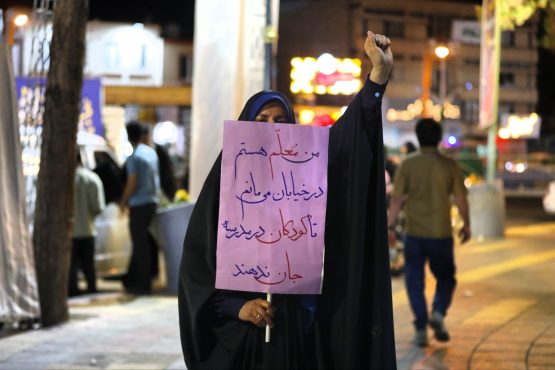 من مُعلّم هستم
در خیابان می مانم
تا کودکان در مدرسه
جان ندهند